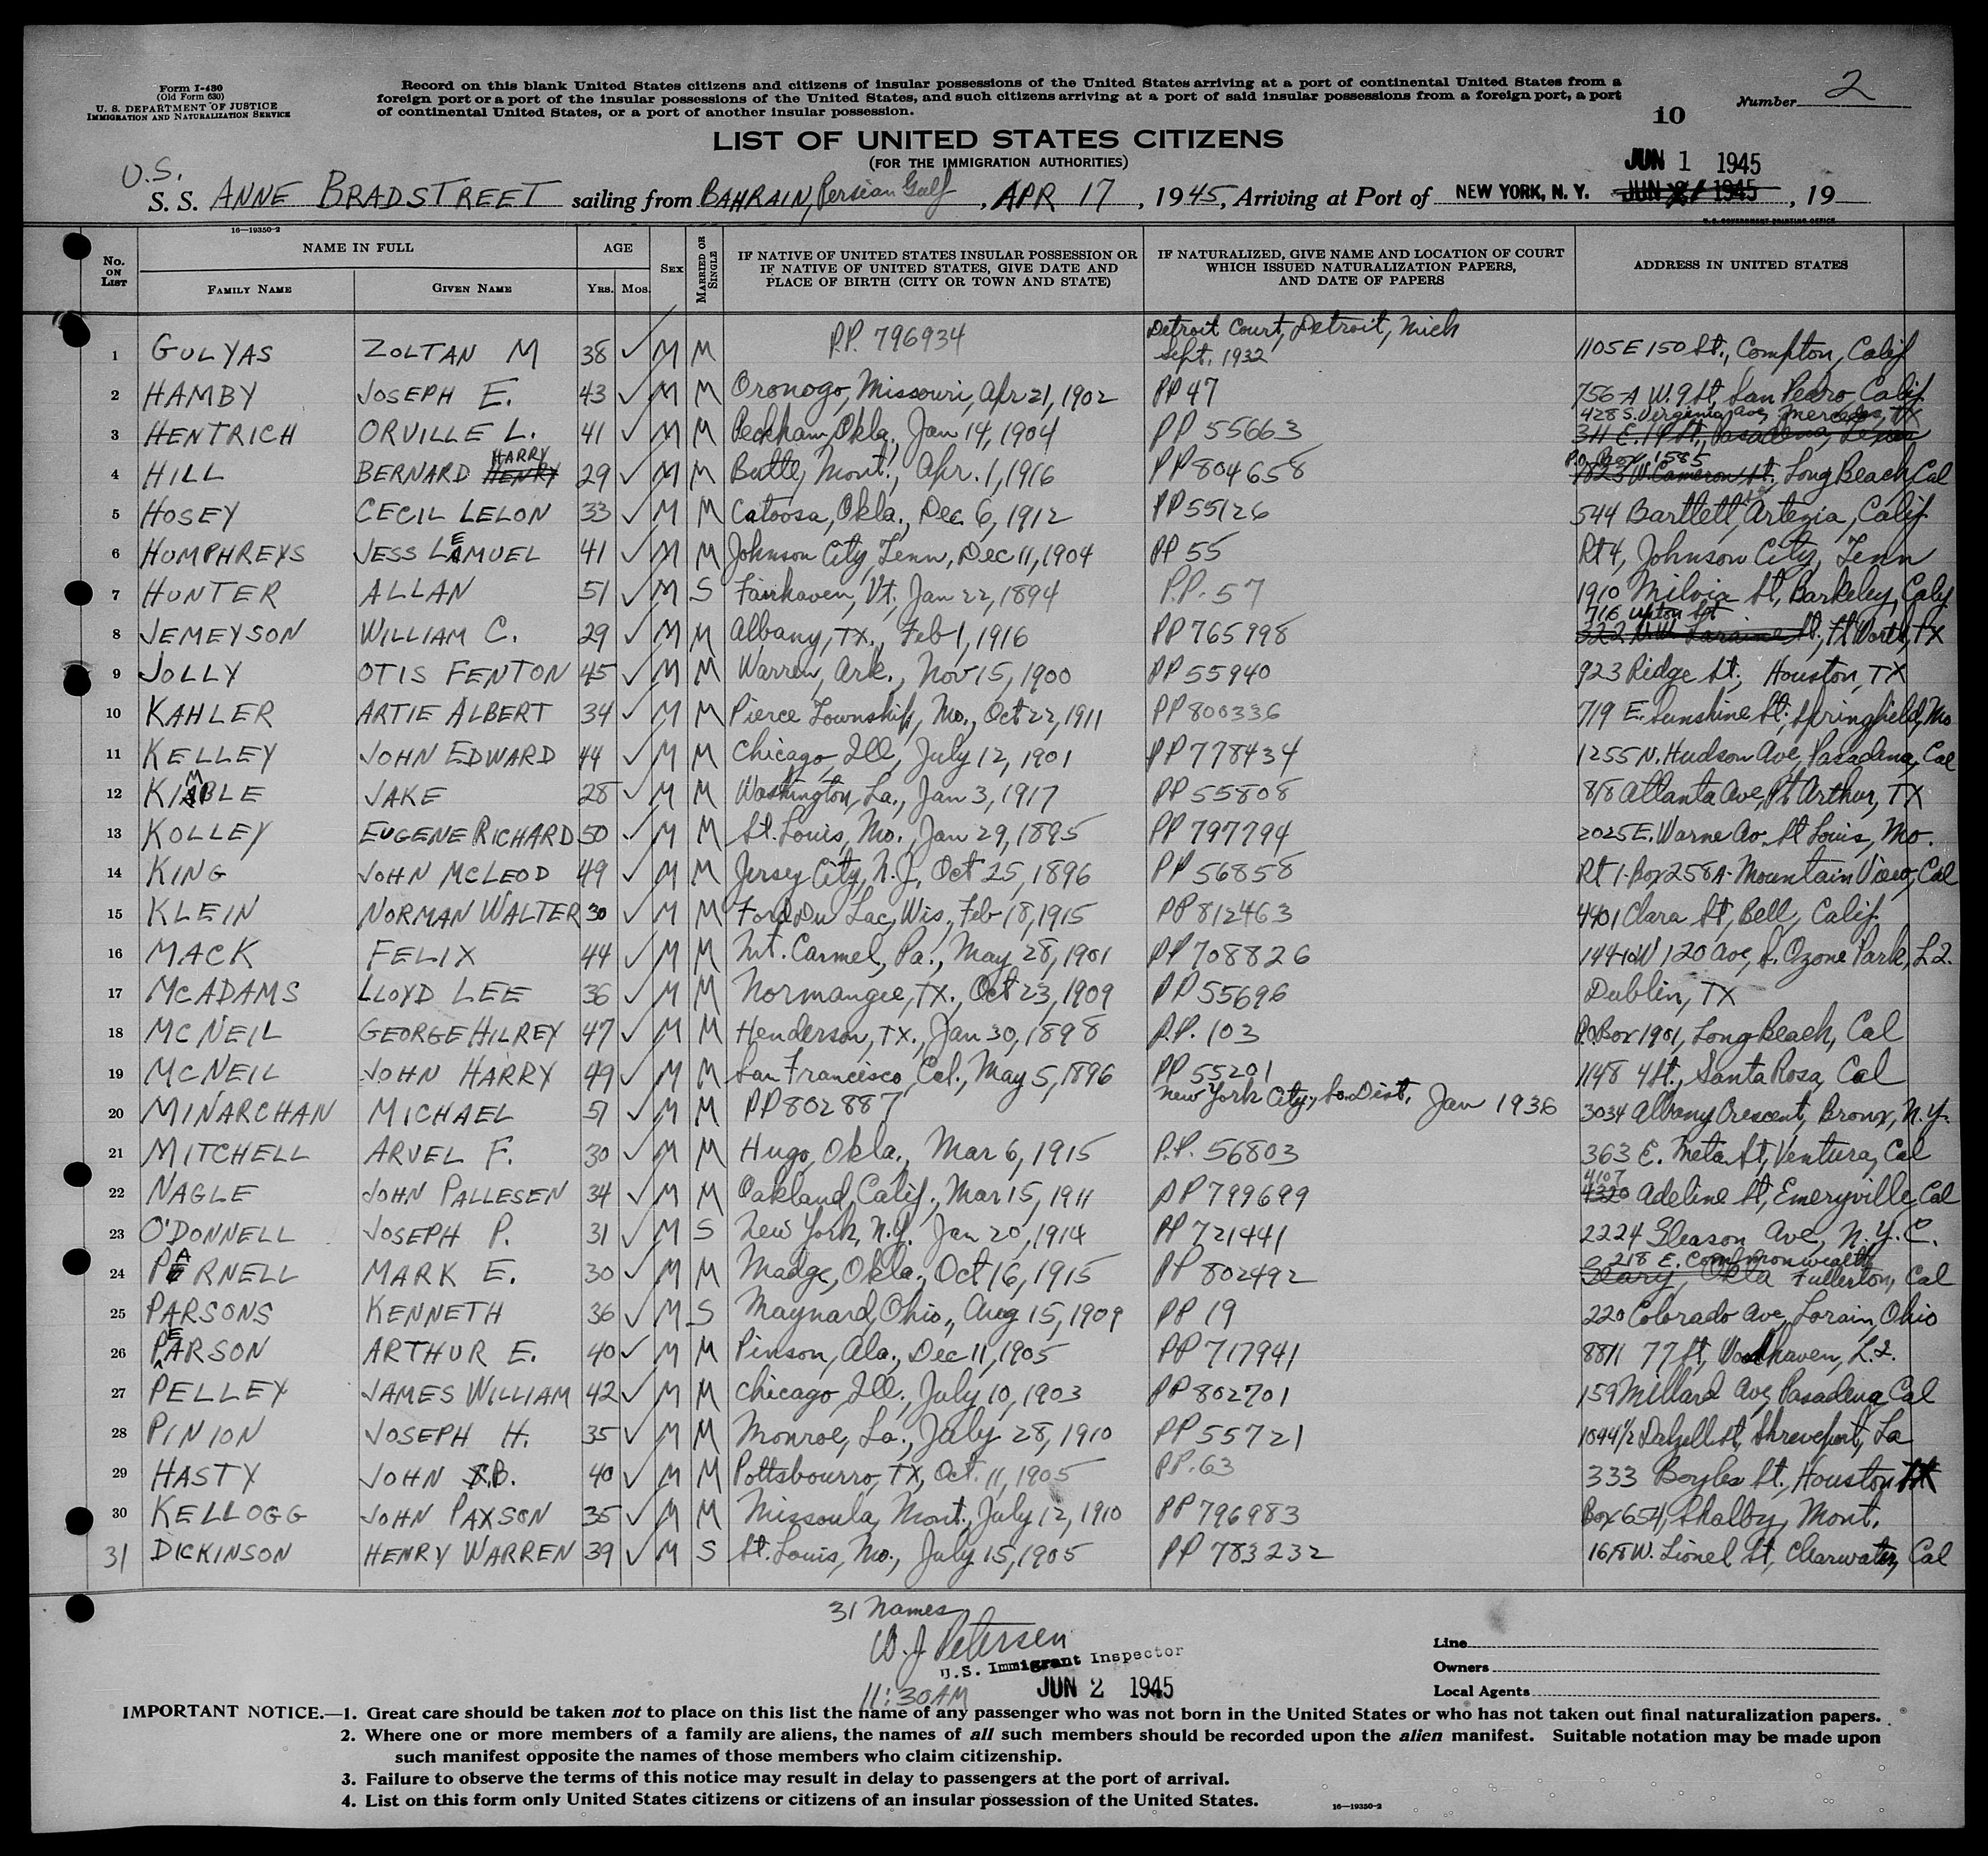 Form I-430
(Old Form 630)
U. S. DEPARTMENT OF JUSTICE
IMMIGRATION AND NATURALIZATION SERVICE
Record on this blank United States citizens and citizens of insular possessions of the United States arriving at a port of continental United States from a
foreign port or a port of the insular possessions of the United States, and such citizens arriving at a port of said insular possessions from a foreign port, a port
of continental United States, or a port of another insular possession.
Number 2
10
LIST OF UNITED STATES CITIZENS
(FOR THE IMMIGRATION AUTHORITIES)
JUN 1 1945
U.S.
S. S. ANNE BRADSTREET sailing from BAHRAIN, Persian Gulf, APR 17, 1945, Arriving at Port of NEW YORK, N. Y. JUN 1945, 19
U. S. GOVERNMENT PRINTING OFFICE
16—19350-2
No. ON LIST
NAME IN FULL
FAMILY NAME
GIVEN NAME
AGE
YRS. MOS.
SEX
MARRIED OR SINGLE
IF NATIVE OF UNITED STATES INSULAR POSSESSION OR
IF NATIVE OF UNITED STATES, GIVE DATE AND
PLACE OF BIRTH (CITY OR TOWN AND STATE)
IF NATURALIZED, GIVE NAME AND LOCATION OF COURT
WHICH ISSUED NATURALIZATION PAPERS,
AND DATE OF PAPERS
ADDRESS IN UNITED STATES
Detroit Court, Detroit, Mich
1 GULYAS ZOLTAN M 38 ✓ M M P.P. 796934 Sept. 1932 1105 E 150 St., Compton, Calif
2 HAMBY JOSEPH E. 43 ✓ M M Oronogo, Missouri, Apr 21, 1902 PP 47 756-A W. 9 St, San Pedro, Calif
428 S. Virginia Ave, Mercedes, TX
3 HENTRICH ORVILLE L. 41 ✓ M M Peckham, Okla., Jan 14, 1904 PP 55663 311 E. 14 St., Pasadena, Texas
HARRY P.O. Box 1585
4 HILL BERNARD HENRY 29 ✓ M M Butte, Mont., Apr. 1, 1916 PP 804658 1823 W. Cameron St., Long Beach Cal
5 HOSEY CECIL LELON 33 ✓ M M Catoosa, Okla., Dec. 6, 1912 PP 55126 544 Bartlett, Artezia, Calif
6 HUMPHREYS JESS LEMUEL 41 ✓ M M Johnson City, Tenn, Dec 11, 1904 PP 55 Rt 4, Johnson City, Tenn
7 HUNTER ALLAN 51 ✓ M S Fairhaven, Vt. Jan 22, 1894 P.P. 57 1910 Milvia St, Barkeley, Calif
716 Upton St
8 JEMEYSON WILLIAM C. 29 ✓ M M Albany, TX., Feb 1, 1916 PP 765998 St., Ft Worth, TX
9 JOLLY OTIS FENTON 45 ✓ M M Warren, Ark., Nov 15, 1900 PP 55940 923 Ridge St, Houston, TX
10 KAHLER ARTIE ALBERT 34 ✓ M M Pierce Township, Mo., Oct 22, 1911 PP 800336 719 E. Sunshine St; Springfield, Mo
11 KELLEY JOHN EDWARD 44 ✓ M M Chicago, Ill, July 12, 1901 PP 778434 1255 N. Hudson Ave, Pasadena, Cal
12 KIMBLE JAKE 28 ✓ M M Washington, La., Jan 3, 1917 PP 55808 818 Atlanta Ave, Pt Arthur, TX
13 KOLLEY EUGENE RICHARD 50 ✓ M M St. Louis, Mo., Jan 29, 1895 PP 797794 2025 E. Warne Av. St Louis, Mo.
14 KING JOHN MCLEOD 49 ✓ M M Jersey City, N.J., Oct 25, 1896 PP 56858 Rt 1-Box 258A-Mountain View, Cal
15 KLEIN NORMAN WALTER 30 ✓ M M Fond Du Lac, Wis., Feb 18, 1915 PP 812463 4901 Clara St, Bell, Calif.
16 MACK FELIX 44 ✓ M M Mt. Carmel, Pa., May 28, 1901 PP 708826 120 Ave, S. Ozone Park, L.I.
17 MCADAMS LLOYD LEE 36 ✓ M M Normangee, TX., Oct 23, 1909 PP 55696 Dublin, TX
18 MCNEIL GEORGE HILREY 47 ✓ M M Henderson, TX., Jan 30, 1898 P.P. 103 P.O. Box 1901, Long Beach, Cal
19 MCNEIL JOHN HARRY 49 ✓ M M San Francisco, Cal., May 5, 1896 PP 55201 1148 4 St., Santa Rosa, Cal
20 MINARCHAN MICHAEL 51 ✓ M M PP 802887 New York City, So. Dist. Jan 1936 3034 Albany Crescent, Bronx, N.Y.
21 MITCHELL ARVEL F. 30 ✓ M M Hugo, Okla., Mar 6, 1915 P.P. 56803 363 E. Meta St, Ventura, Cal
4107
22 NAGLE JOHN PALLESEN 34 ✓ M M Oakland, Calif., Mar 15, 1911 PP 799699 4320 Adeline St, Emeryville, Cal
23 O'DONNELL JOSEPH P. 31 ✓ M S New York, N.Y. Jan 20, 1914 PP 721441 2224 Gleason Ave, N.Y.C.
218 E. Commonwealth
24 PARNELL MARK E. 30 ✓ M M Madge, Okla., Oct 16, 1915 PP 802492 Okla Fullerton, Cal
25 PARSONS KENNETH 36 ✓ M S Maynard, Ohio., Aug 15, 1909 PP 19 220 Colorado Ave, Lorain, Ohio
26 PEARSON ARTHUR E. 40 ✓ M M Pinson, Ala., Dec 11, 1905 PP 717941 8811 77 St, Woodhaven, L.I.
27 PELLEY JAMES WILLIAM 42 ✓ M M Chicago, Ill., July 10, 1903 PP 802701 159 Millard Ave, Pasadena, Cal
28 PINION JOSEPH H. 35 ✓ M M Monroe, La., July 28, 1910 PP 55721 1044 1/2 Dalzell St, Shreveport, La
29 HASTY JOHN B. 40 ✓ M M Pottsbourro, TX, Oct. 11, 1905 PP. 63 333 Boyles St., Houston TX
30 KELLOGG JOHN PAXSON 35 ✓ M M Missoula, Mont., July 12, 1910 PP 796983 Box 654, Shalby, Mont.
31 DICKINSON HENRY WARREN 39 ✓ M S St. Louis, Mo., July 15, 1905 PP 783232 1618 W. Lionel St, Clearwater, Cal
31 Names
W. J. Petersen
U.S. Immigrant Inspector
11:30 AM JUN 2 1945
Line
Owners
Local Agents
IMPORTANT NOTICE.—1. Great care should be taken not to place on this list the name of any passenger who was not born in the United States or who has not taken out final naturalization papers.
2. Where one or more members of a family are aliens, the names of all such members should be recorded upon the alien manifest. Suitable notation may be made upon
such manifest opposite the names of those members who claim citizenship.
3. Failure to observe the terms of this notice may result in delay to passengers at the port of arrival.
4. List on this form only United States citizens or citizens of an insular possession of the United States.
16—19350-2